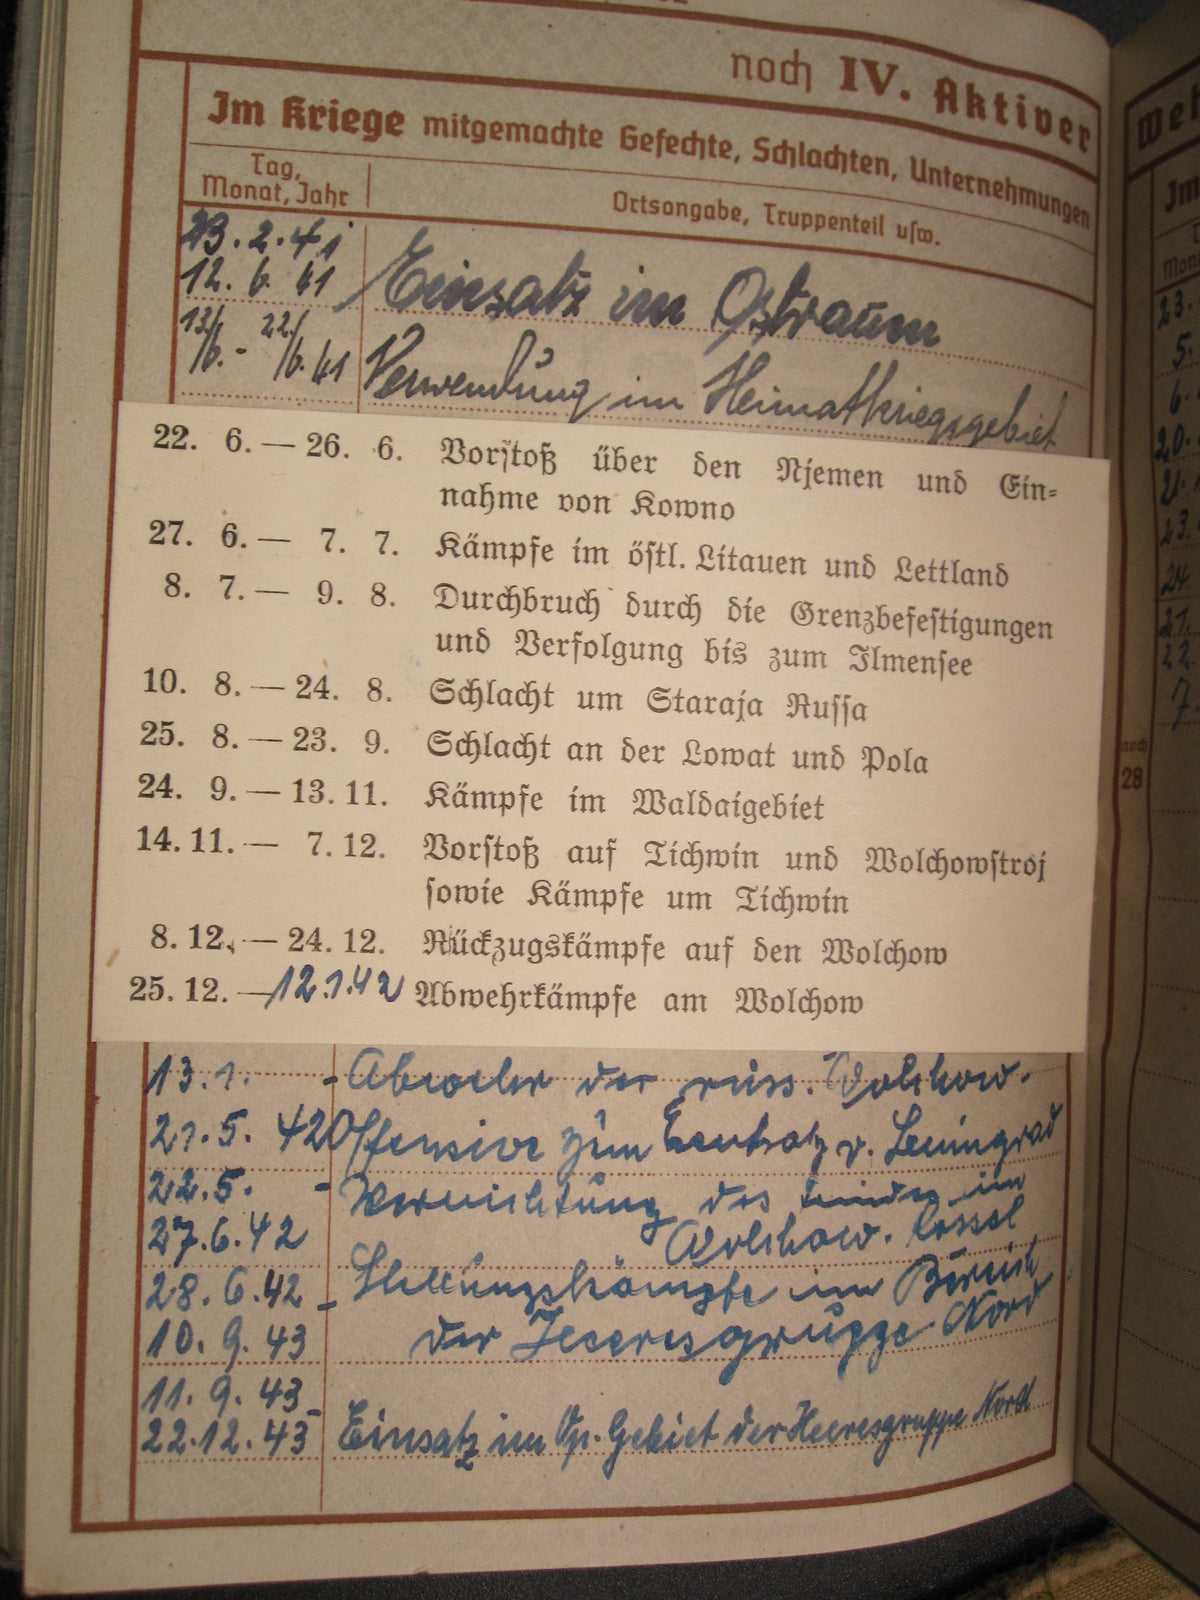 noch IV. Aktiver
Im Kriege mitgemachte Gefechte, Schlachten, Unternehmungen
Tag,
Monat, Jahr
Ortsangabe, Truppenteil usw.
23. 2. 41
12. 6. 41 Einsatz im Ostraum
13/6. - 22/6. 41 Verwendung im Heimatkriegsgebiet
22. 6. — 26. 6. Vorstoß über den Njemen und Ein-
nahme von Kowno
27. 6. — 7. 7. Kämpfe im östl. Litauen und Lettland
8. 7. — 9. 8. Durchbruch durch die Grenzbefestigungen
und Verfolgung bis zum Ilmensee
10. 8. — 24. 8. Schlacht um Staraja Russa
25. 8. — 23. 9. Schlacht an der Lowat und Pola
24. 9. — 13. 11. Kämpfe im Waldaigebiet
14. 11. — 7. 12. Vorstoß auf Tichwin und Wolchowstroj
sowie Kämpfe um Tichwin
8. 12. — 24. 12. Rückzugskämpfe auf den Wolchow
25. 12. — 12.1.42 Abwehrkämpfe am Wolchow
13. 1. - Abwehr der russ. Wolchow-
21. 5. 42 Offensive zum Entsatz v. Leningrad
22. 5. - Vernichtung des im
27. 6. 42 Wolchow-Kessel
28. 6. 42 - Stellungskämpfe im Bereich
10. 9. 43 der Heeresgruppe Nord
11. 9. 43 -
22. 12. 43 Einsatz im Op. Gebiet der Heeresgruppe Nord
Im
23.
5.
6.
20.
21.
23.
24
21.
22.
7.
noch
28